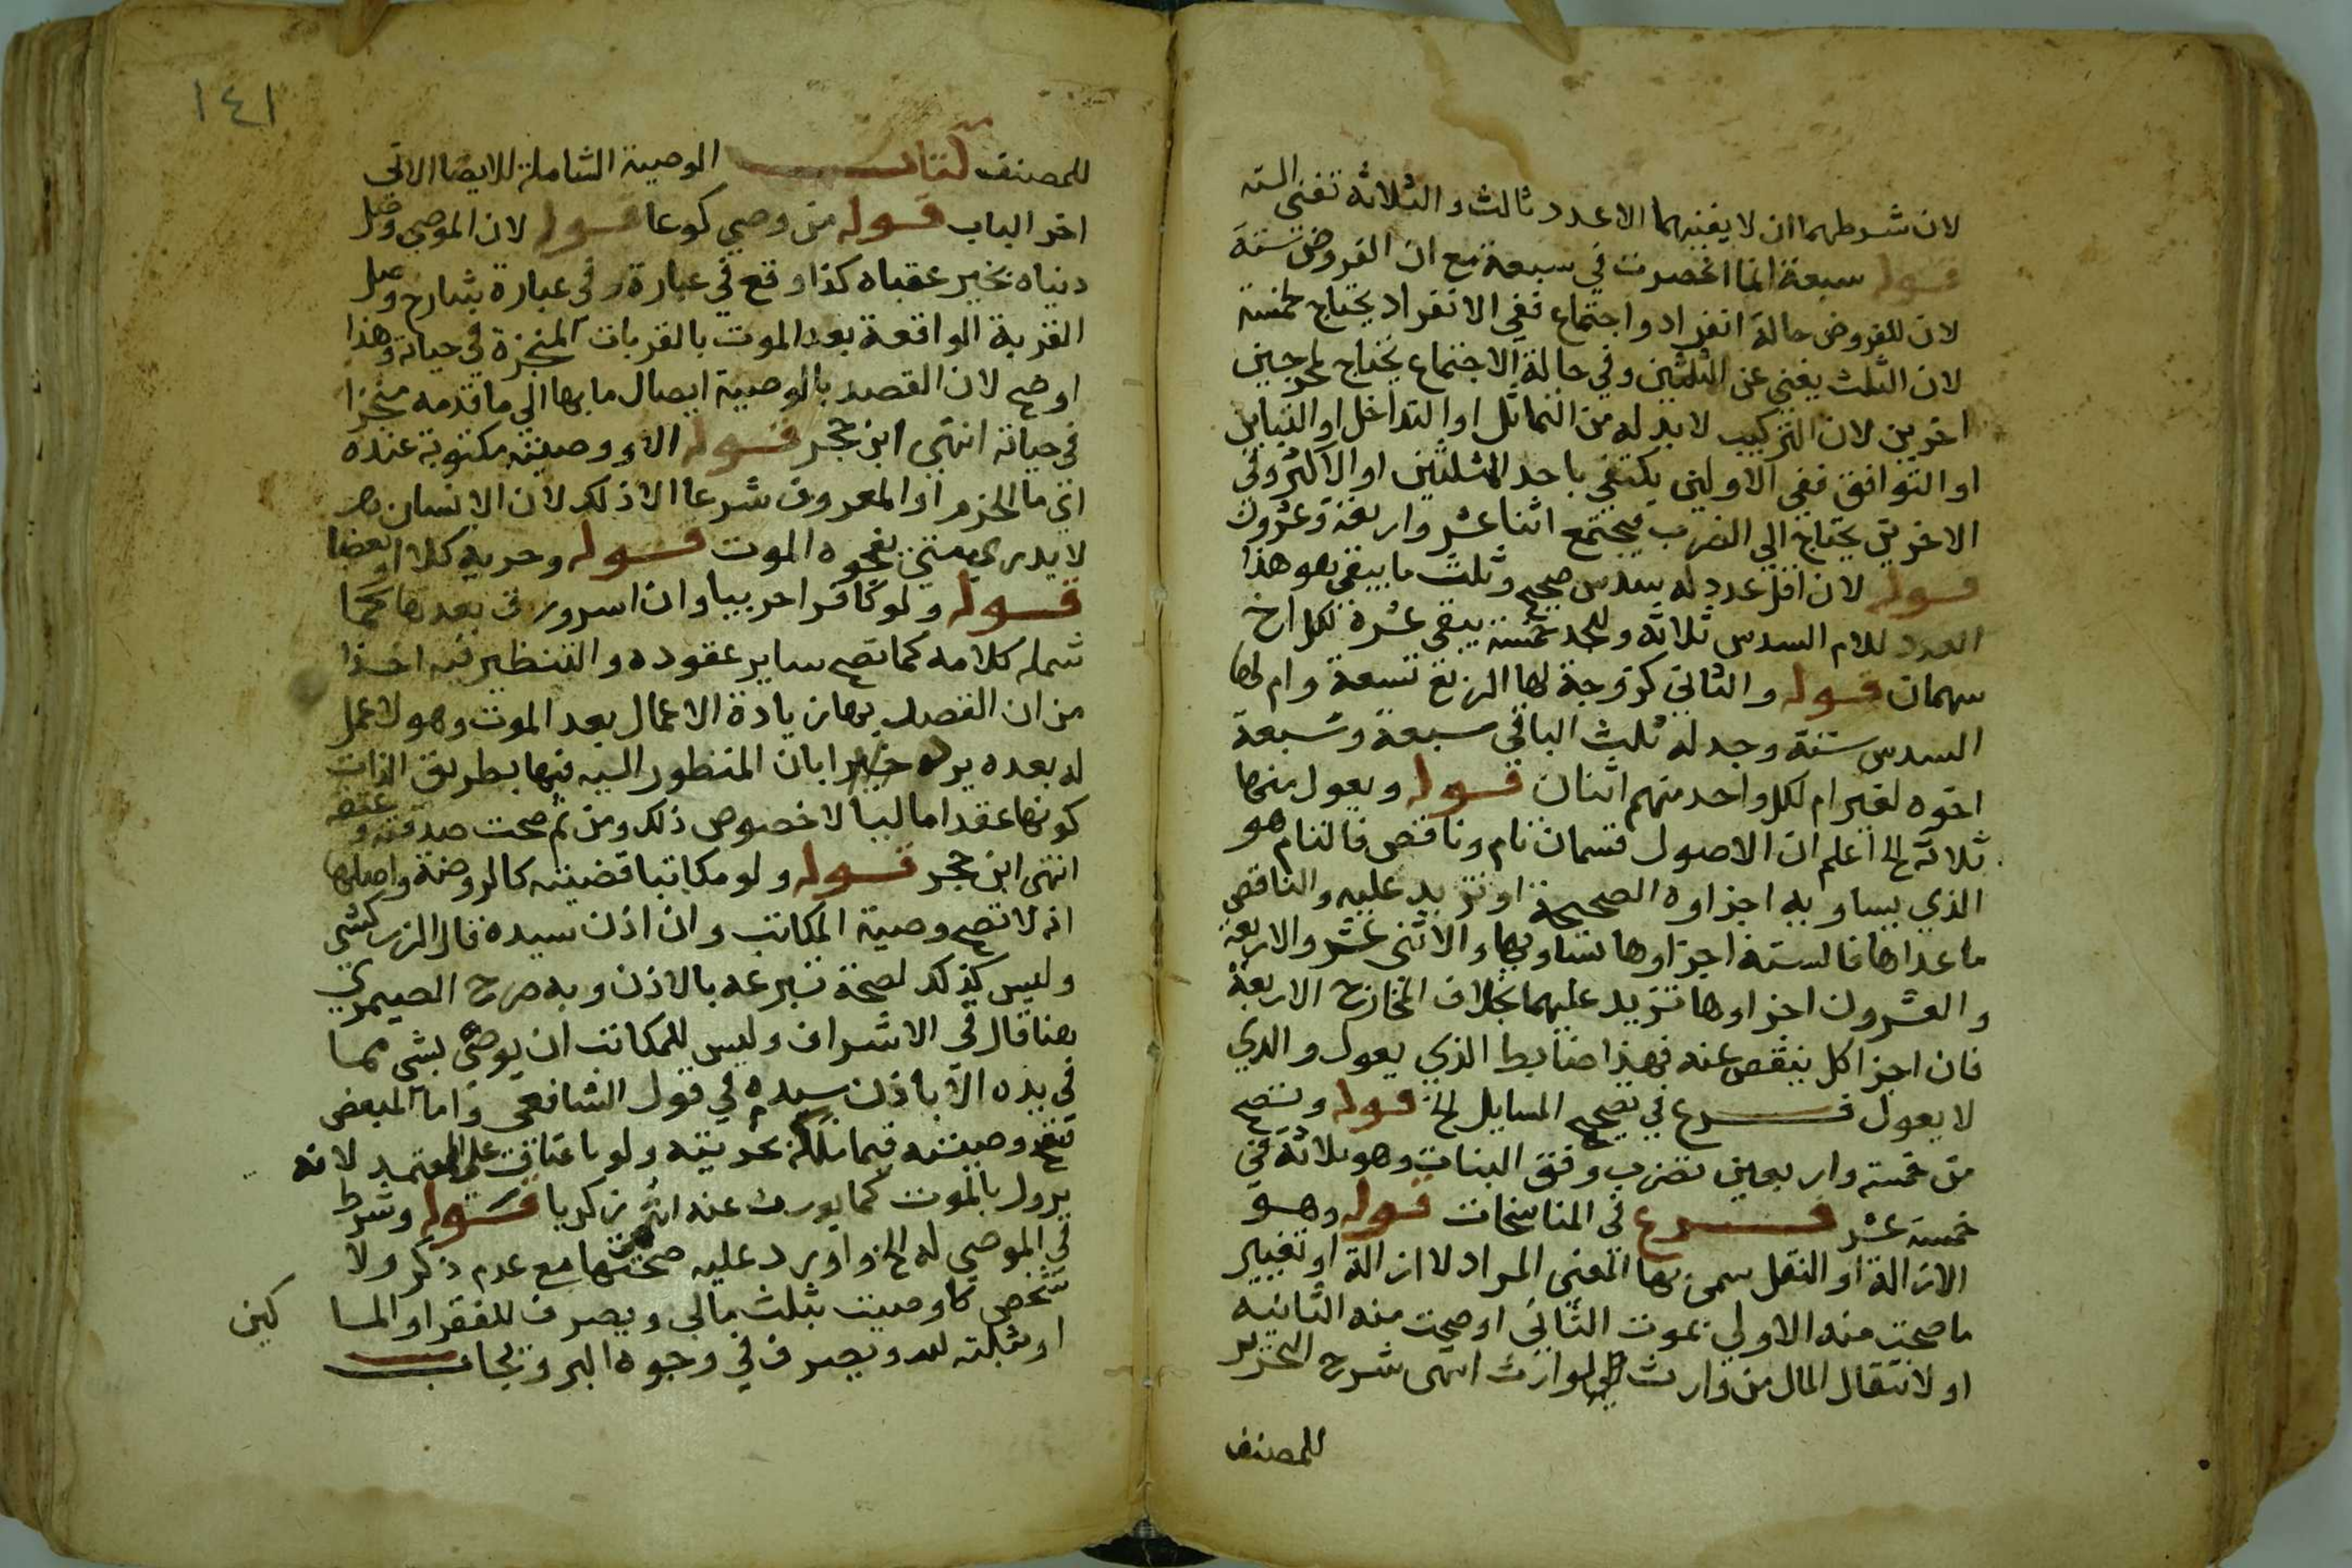 لان شرطهما ان لا يفنيهما الا عدد ثالث والثلاثة تفني الستة
قوله سبعة انما انحصرت في سبعة مع ان الفروض ستة
لان للفروض حالة انفراد واجتماع ففي الانفراد يحتاج لخمسة
لان الثلث يغني عن الثلثين وفي حالة الاجتماع يحتاج لمخرجين
اخرين لان التركيب لا بد له من التماثل او التداخل او التباين
او التوافق ففي الاولين يكتفي باحد المثلثين او الاكثر وفي
الاخرين يحتاج الي الضرب فيجتمع اثنا عشر واربعة وعشرون
قوله لان اقل عدد له سدس صحيح وثلث ما يبقي هو هذا
العدد للام السدس ثلاثة وللجد خمسة يبقي عشرة لكل اخ
سهمان قوله والثاني كزوجة لها الربع تسعة وام لها
السدس ستة وجد له ثلث الباقي سبعة وسبعة
اخوه لغير ام لكل واحد منهم اثنان قوله ويعول منها
ثلاثة الخ اعلم ان الاصول قسمان تام وناقص فالتام هو
الذي يساويه اجزاوه الصحيحة او تزيد عليه والناقص
ما عداها فالستة اجزاوها تساويها والاثني عشر والاربعة
والعشرون اجزاوها تزيد عليهما بخلاف المخارج الاربعة
فان اجزا كل ينقص عنه فهذا ضابط الذي يعول والذي
لا يعول فرع في تصحيح المسايل الخ قوله وتصح
من خمسة واربعين تضرب وفق البنات وهو ثلاثة في
خمسة عشر فرع في المناسخات قوله وهو
الازالة او النقل سمي بها المعني المراد لازالة او تغيير
ما صحت منه الاولي بموت الثاني او صحت منه الثانية
او لانتقال المال من وارث الي لوارث انتهى شرح التحرير
للمصنف
١٤١
للمصنف كتاب الوصية الشاملة للايصا الاتي
اخر الباب قوله من وصي كوعا قوله لان الموصي وصل
دنياه بخير عقباه كذا وقع في عبارة وفي عبارة شارح وصل
القربة الواقعة بعد الموت بالقربات المنجزة في حياته وهذا
اوضح لان القصد بالوصية ايصال ما بها الي ما قدمه منجزا
في حياته انتهى ابن حجر قوله الا ووصيته مكتوبة عنده
اي ما الحزم او المعروف شرعا الا ذلك لان الانسان
لا يدري متي يفجوه الموت قوله وحرية كلا او بعضا
قوله ولو كافرا حربيا وان اسر ورق بعدها كما
شمله كلامه كما تصح ساير عقوده والتنظير فيه اخذا
من ان القصد بها زيادة الاعمال بعد الموت وهو لا عمل
له بعده يرده بان المنظور اليه فيها بطريق الذات
كونها عقدا ماليا لا خصوص ذلك ومن ثم صحت صدقته وعتقه
انتهى ابن حجر قوله ولو مكاتبا قضيته كالروضة واصلها
انه لا تصح وصية المكاتب وان اذن سيده قال الزركشي
وليس كذلك لصحة تبرعه بالاذن وبه صرح الصيمري
هنا قال في الاشراف وليس للمكاتب ان يوصي بشي مما
في يده الا باذن سيده في قول الشافعي واما المبعض
فتصح وصيته فيما ملكه بحريته ولو باعتاق علي المعتمد لانه
يزول بالموت كما يورث عنه زكريا قوله وشرط
في الموصي له الخ واورد عليه صحتها مع عدم ذكر ولا
شخص كاوصيت بثلث مالي ويصرف للفقرا والمسا كين
او بثلثه لله ويصرف في وجوه البر ويجاب